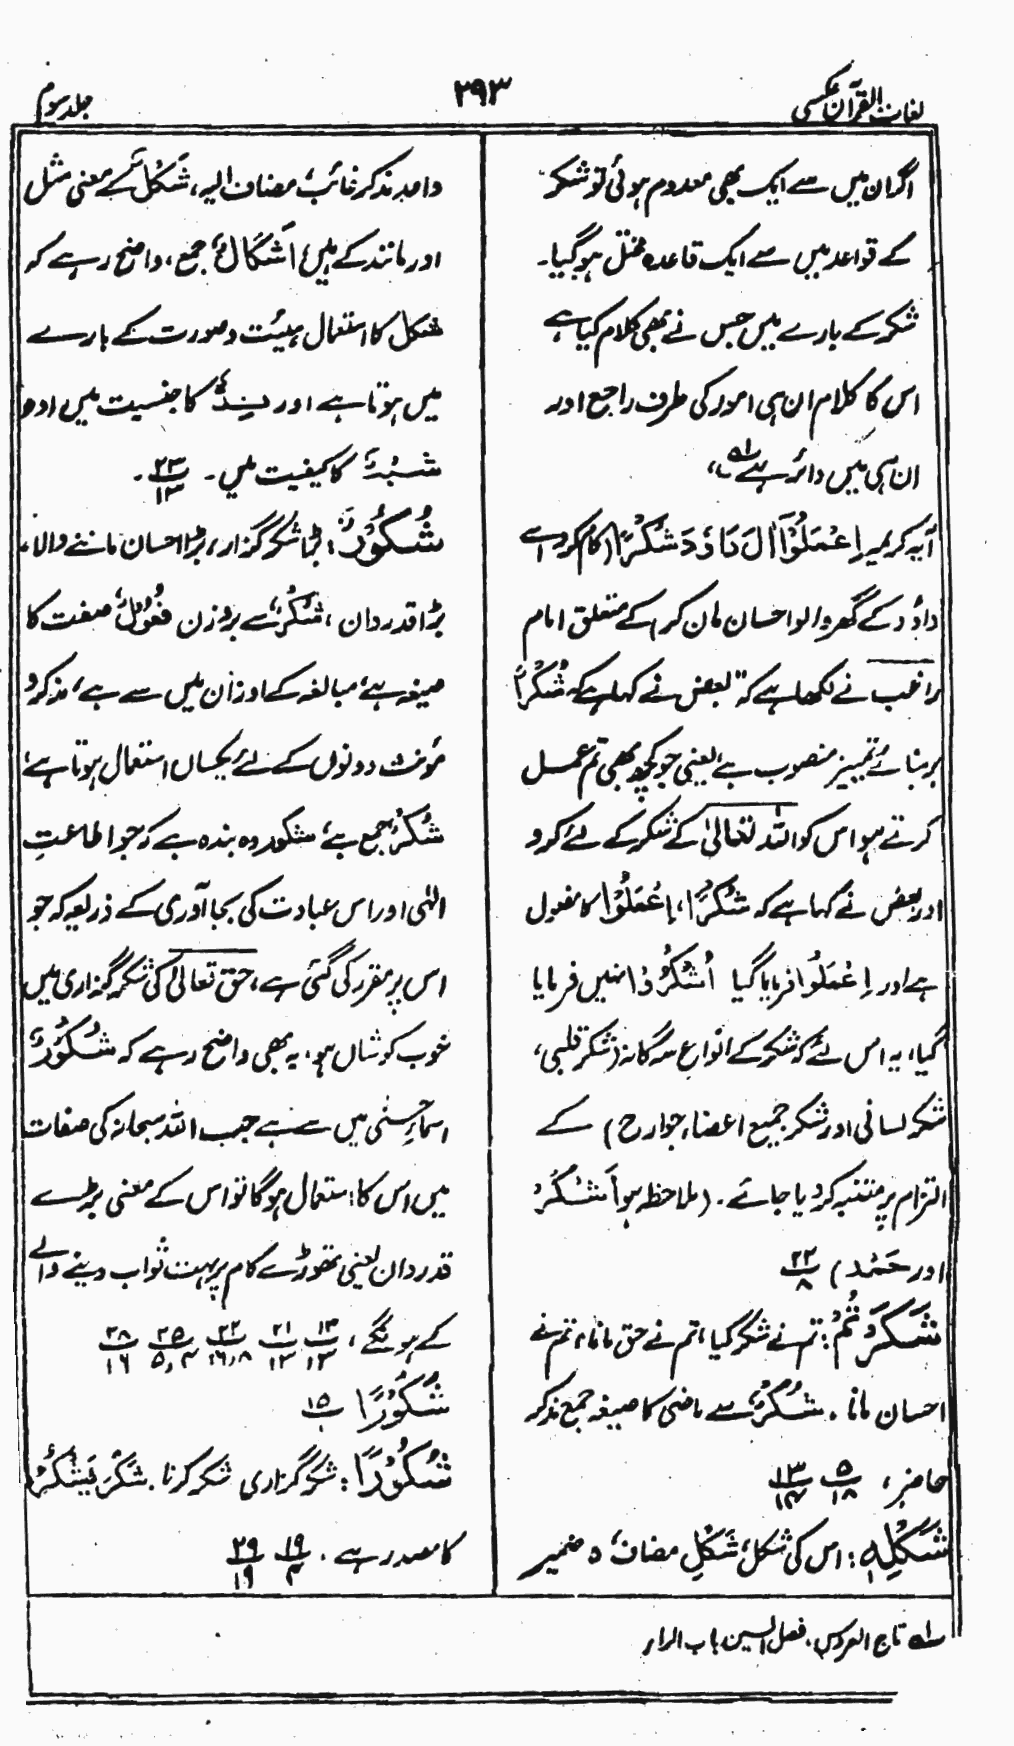 لغات القرآن عکسی
۲۹۳
جلد سوم
اگر ان میں سے ایک بھی معدوم ہوئی تو شکر
کے قواعد میں سے ایک قاعدہ مختل ہوگیا۔
شکر کے بارے میں جس نے بھی کلام کیا ہے
اس کا کلام ان ہی امور کی طرف راجع اور
ان ہی میں دائر ہے لہ،
آیہ کریمہ اِعْمَلُوْٓا اٰلَ دَاوٗدَ شُكْرًا (کام کرو اے
داؤد کے گھر والو احسان مان کر) کے متعلق امام
راغب نے لکھا ہے کہ "بعض نے کہا ہے کہ شُكْرًا
بر بنائے تمییز منصوب ہے یعنی جو کچھ بھی تم عمل
کرتے ہو اس کو اللہ تعالیٰ کے شکر کے لئے کرو
اور بعض نے کہا ہے کہ شُكْرًا، اِعْمَلُوْا کا مفعول
ہے اور اِعْمَلُوا فرمایا گیا اُشْكُرُوْا نہیں فرمایا
گیا، یہ اس لئے کہ شکر کے انواع سہ گانہ (شکر قلبی،
شکر لسانی اور شکر جمیع اعضاء جوارح) کے
التزام پر متنبہ کر دیا جائے۔ (ملاحظہ ہو اَشْكُرُ
اور حَمْد) ۲۲/۸
شَكَرْتُمْ: تم نے شکر کیا، تم نے حق مانا، تم نے
احسان مانا۔ شُكْرٌ سے ماضی کا صیغہ جمع مذکر
حاضر، ۵/۱۸ ۱۳/۱۴
شَكْلِهٖ: اس کی شکل، شَكْلِ مضاف، ہ ضمیر
واحد مذکر غائب، مضاف الیہ، شَكْلٌ کے معنی مثل
اور مانند کے ہیں، اَشْكَالٌ جمع، واضح رہے کہ
شکل کا استعمال ہیئت و صورت کے بارے
میں ہوتا ہے اور نِدٌّ کا جنسیت میں اور
شِبْهٌ کا کیفیت میں۔ ۲۳/۱۳۔
شَكُوْرٌ: بڑا شکر گزار، بڑا احسان ماننے والا،
بڑا قدردان، شُكْرٌ سے بروزن فَعُوْلٌ صفت کا
صیغہ ہے، مبالغہ کے اوزان میں سے ہے، مذکر و
مؤنث دونوں کے لئے یکساں استعمال ہوتا ہے،
شُكْرٌ جمع ہے، شکور وہ بندہ ہے کہ جو اطاعتِ
الٰہی اور اس عبادت کی بجا آوری کے ذریعہ کہ جو
اس پر مقرر کی گئی ہے، حق تعالیٰ کی شکر گزاری میں
خوب کوشاں ہو، یہ بھی واضح رہے کہ شَكُوْرٌ
اسماءِ حسنیٰ میں سے ہے جب اللہ سبحانہ کی صفات
میں اس کا استعمال ہوگا تو اس کے معنی بڑے
قدردان یعنی تھوڑے کام پر بہت ثواب دینے والے
کے ہونگے، ۱۳/۱۳ ۲۱/۱۲ ۲۲/۱۶،۸ ۲۵/۵،۴ ۲۸/۱۶
شَكُوْرًا ۱۵/۱
شُكُوْرًا: شکر گزاری شکر کرنا۔ شَكَرَ يَشْكُرُ
کا مصدر ہے۔ ۱۹/۴ ۲۹/۱۹
لہ تاج العروس، فصل السین باب الراء